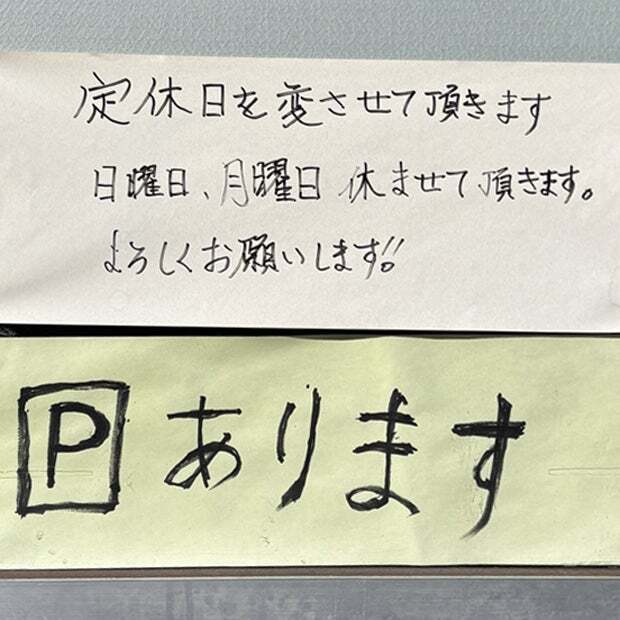 定休日を変させて頂きます
日曜日、月曜日 休ませて頂きます。
よろしくお願いします!!
P あります